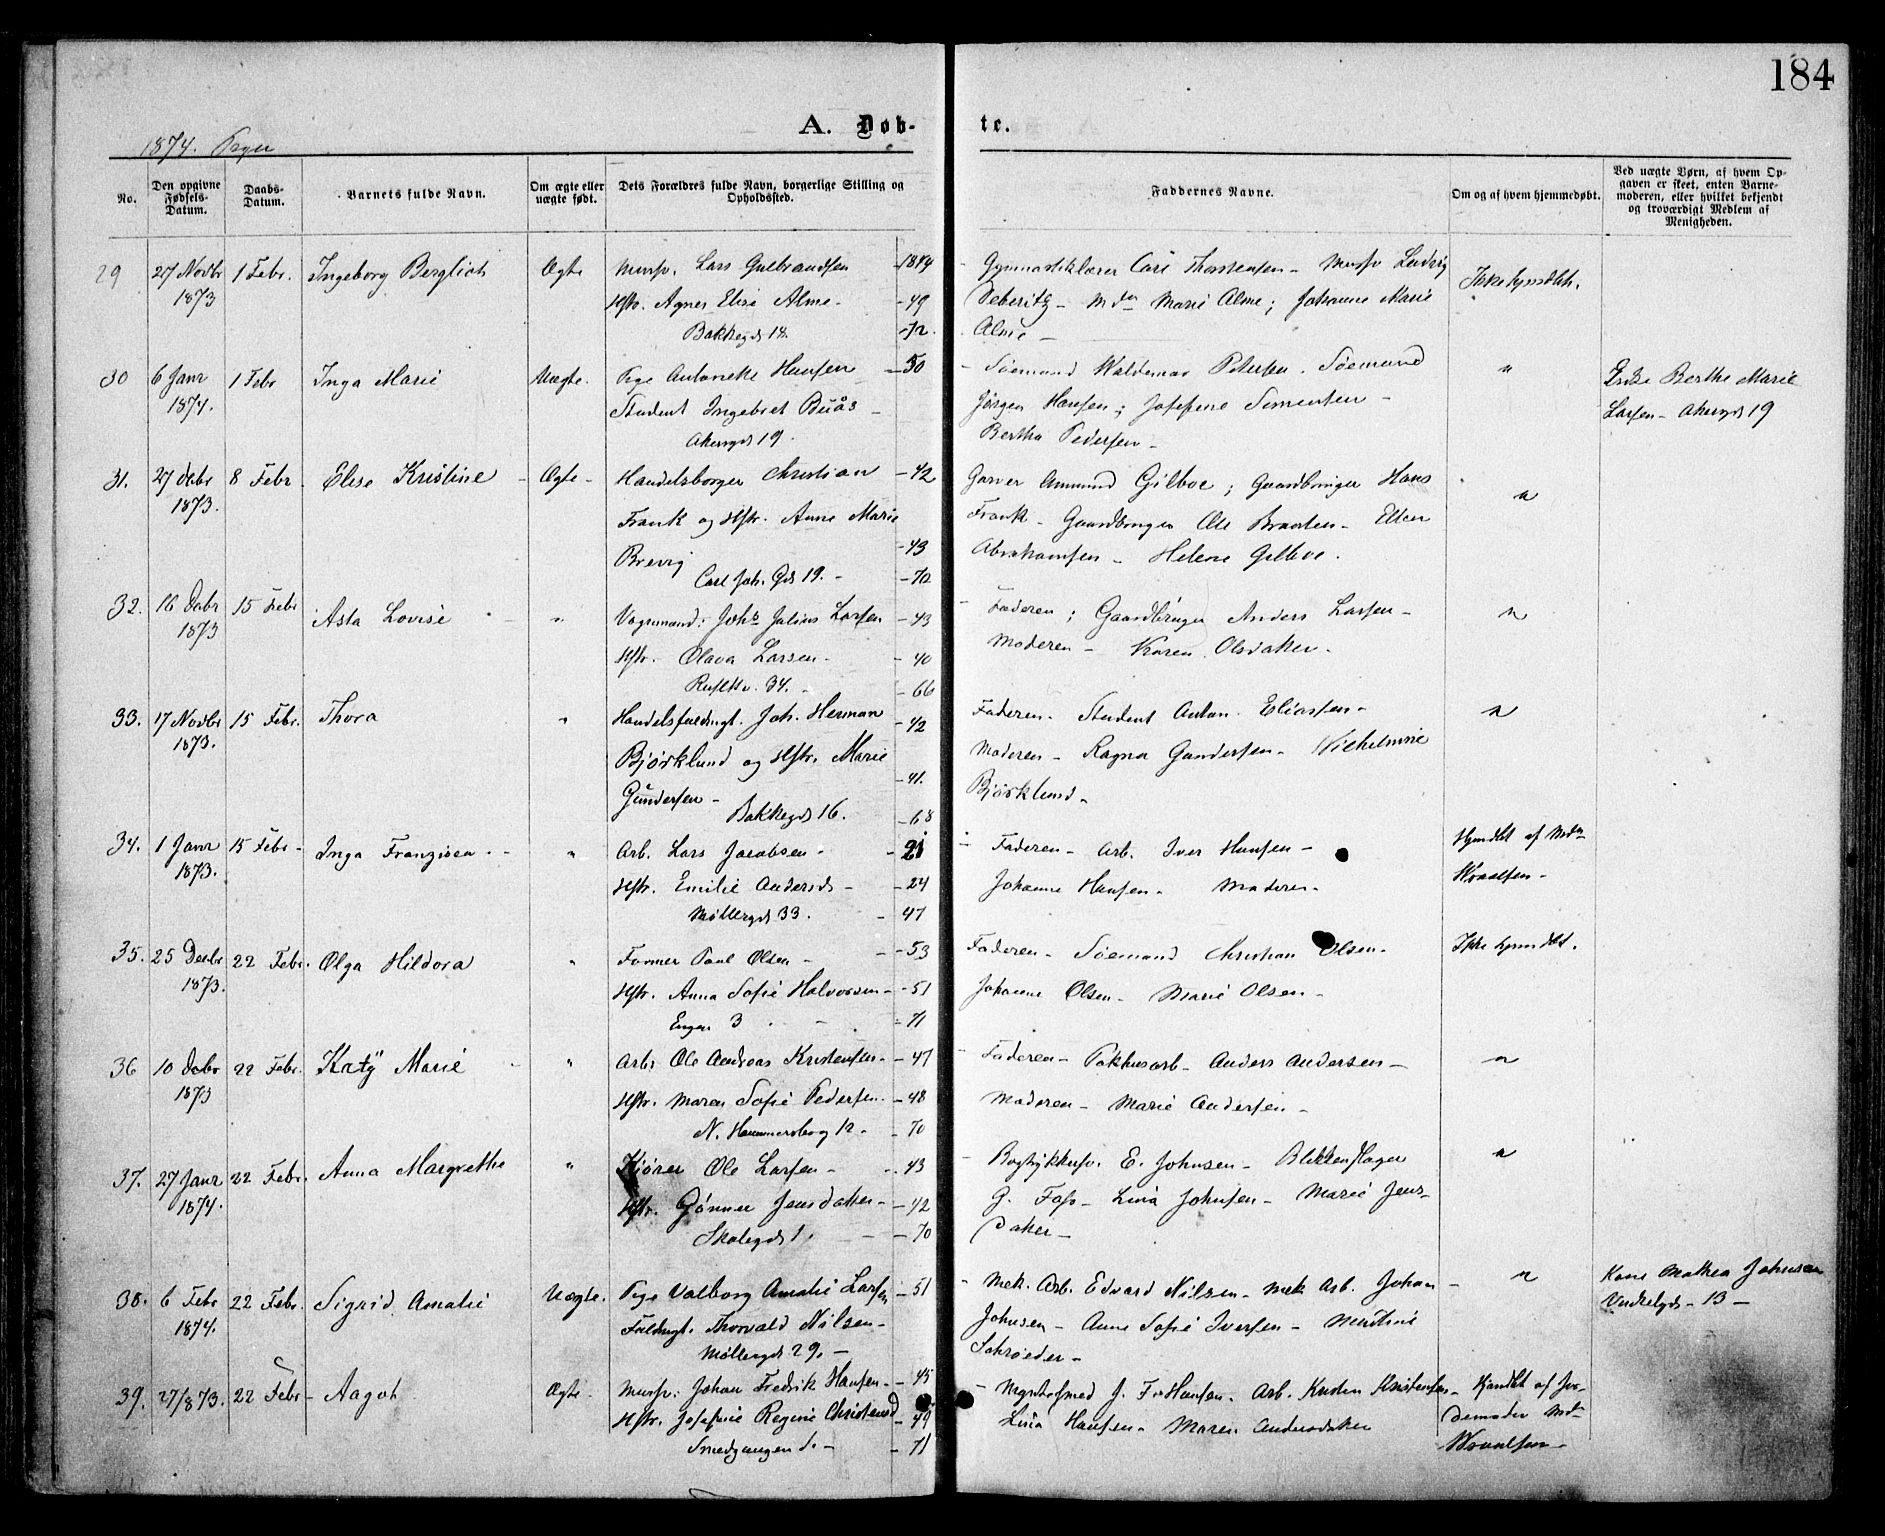 184
A. Døb-
te.
1874. Piger
No.
Den opgivne Fødsels-Datum.
Daabs-Datum.
Barnets fulde Navn.
Om ægte eller uægte født.
Dets Forældres fulde Navn, borgerlige Stilling og Opholdssted.
Faddernes Navne.
Om og af hvem hjemmedøbt.
Ved uægte Børn, af hvem Opgaven er skeet, enten Barnemoderen, eller hvilket bekjendt og troværdigt Medlem af Menigheden.
29 27 Novbr 1 Febr. Ingeborg Bergliot Ægte Mursv. Lars Gulbrandsen - 1849
1873 Hstr. Agnes Elise Alme - - 49
Bakkegd 18. - 72.
Gymnastiklærer Carl Thorstensen - Mursv Ludvig
Deberitz - Mdm Marie Alme; Johanne Marie
Alme -
Ikke hjmdøbt.
30 6 Janr 1 Febr Inga Marie Uægte. Pige Antonette Hansen - 50
1874. Student Ingebret Buås -
Akersgd 19.
- Sømand Waldemar Petersen. Sømand
Jørgen Hansen; Josefine Simensen -
Bertha Pedersen -
"
Enke Berthe Marie
Larsen - Akersgd 19
31. 27 Debr 8 Febr Elise Kristine - Ægte - Handelsborger Christian - 42
1873. Frank og Hstr. Anne Marie
Brevig - 43
Carl Joh. Gd 19. - - 70
Garver Ammund Gilboe; Gaardbruger Hans
Frank - Gaardbruger Ole Braaten - Ellen
Abrahamsen - Helene Gilboe.
"
32. 16 Debr 15 Febr Asta Lovise " Vognmand: Johs Julius Larsen - 43
1873 Hstr. Olava Larsen - - 40
34. - 66
- Faderen; Gaardbruger Anders Larsen -
Moderen - Karen Olsdatter -
"
33. 17 Novbr 15 Febr. Thora " Handelsfuldmgt. Joh. Herman - 42
1873. Bjørklund og Hstr. Marie
- 41.
Gundersen -
Bakkegd 16. - 68
Faderen - Student Anton Eliassen -
Moderen - Ragna Gundersen - Wilhelmine
Bjørklund -
"
34. 1 Janr 15 Febr - Inga Franzisca - - " Arb. Lars Jacobsen - - 21
1873. Hstr. Emilie Andersd - - 24
Møllergd 33. - 47
Faderen - Arb. Iver Hansen -
Johanne Hansen - Moderen -
Hjmdøbt af Mdm
35. 25 Decbr 22 Febr. Olga Hildora " Former Paul Olsen - - 53
1873. Hstr. Anna Sofie Halvorsen - - 51
Engen 3 - 71
Faderen - Sømand Christian Olsen -
Johanne Olsen - Marie Olsen -
Ikke hjmdøbt.
36 10 Debr 22 Febr. Katy Marie " Arb. Ole Andreas Kristensen - - 47
1873 Hstr. Maren Sofie Pedersen - - 48
N. Hammersborg 12. - 70
- Faderen - Pakhusarb - Anders Andersen -
Moderen - Marie Andersen -
"
37. 27 Janr 22 Febr. Anna Margrethe " Kjører Ole Larsen - - 43
1874. Hstr. Gønner Jensdatter - - 42
Skolegd 1. - 70
- Bogtrykkersv. E. Johnsen - Blikkenslager
G. Foss - Lina Johnsen - Marie Jens-
datter -
"
38. 6 Febr 22 Febr. Sigrid Amalie Uægte. Pige Valborg Amalie Larsen - 51
1874. Fuldmgt. Thorvald Nilsen -
Møllergd 29. -
- Mek. Arb. Edvard Nilsen - Mek Arb. Johan
Johnsen - Anne Sofie Iversen -
Schrøeder -
"
Kone Mathea Johnsen
13 -
39. 27/8 73. 22 Febr - Aagot Ægte - Mursv: Johan Fredrik Hansen - - 45
Hstr. Josefine Regine Christensd - 49
Smedgangen 5. - - 71
J. Fr Hansen - Arb. Kristen Kristensen -
Lina Hansen - Maren Andersdatter
Hjmdøbt af Jor-
demoder Md